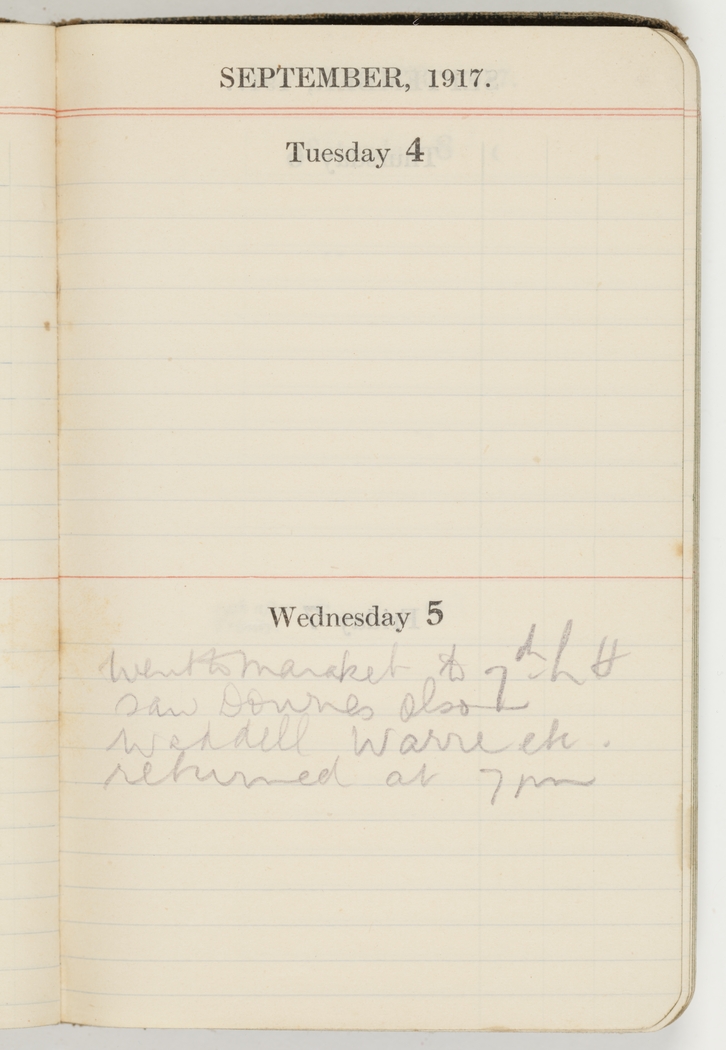 SEPTEMBER, 1917.
Tuesday 4
Wednesday 5
went to maraket to 7th L H
saw Downes Olson
Weddell Warre etc.
returned at 7 pm